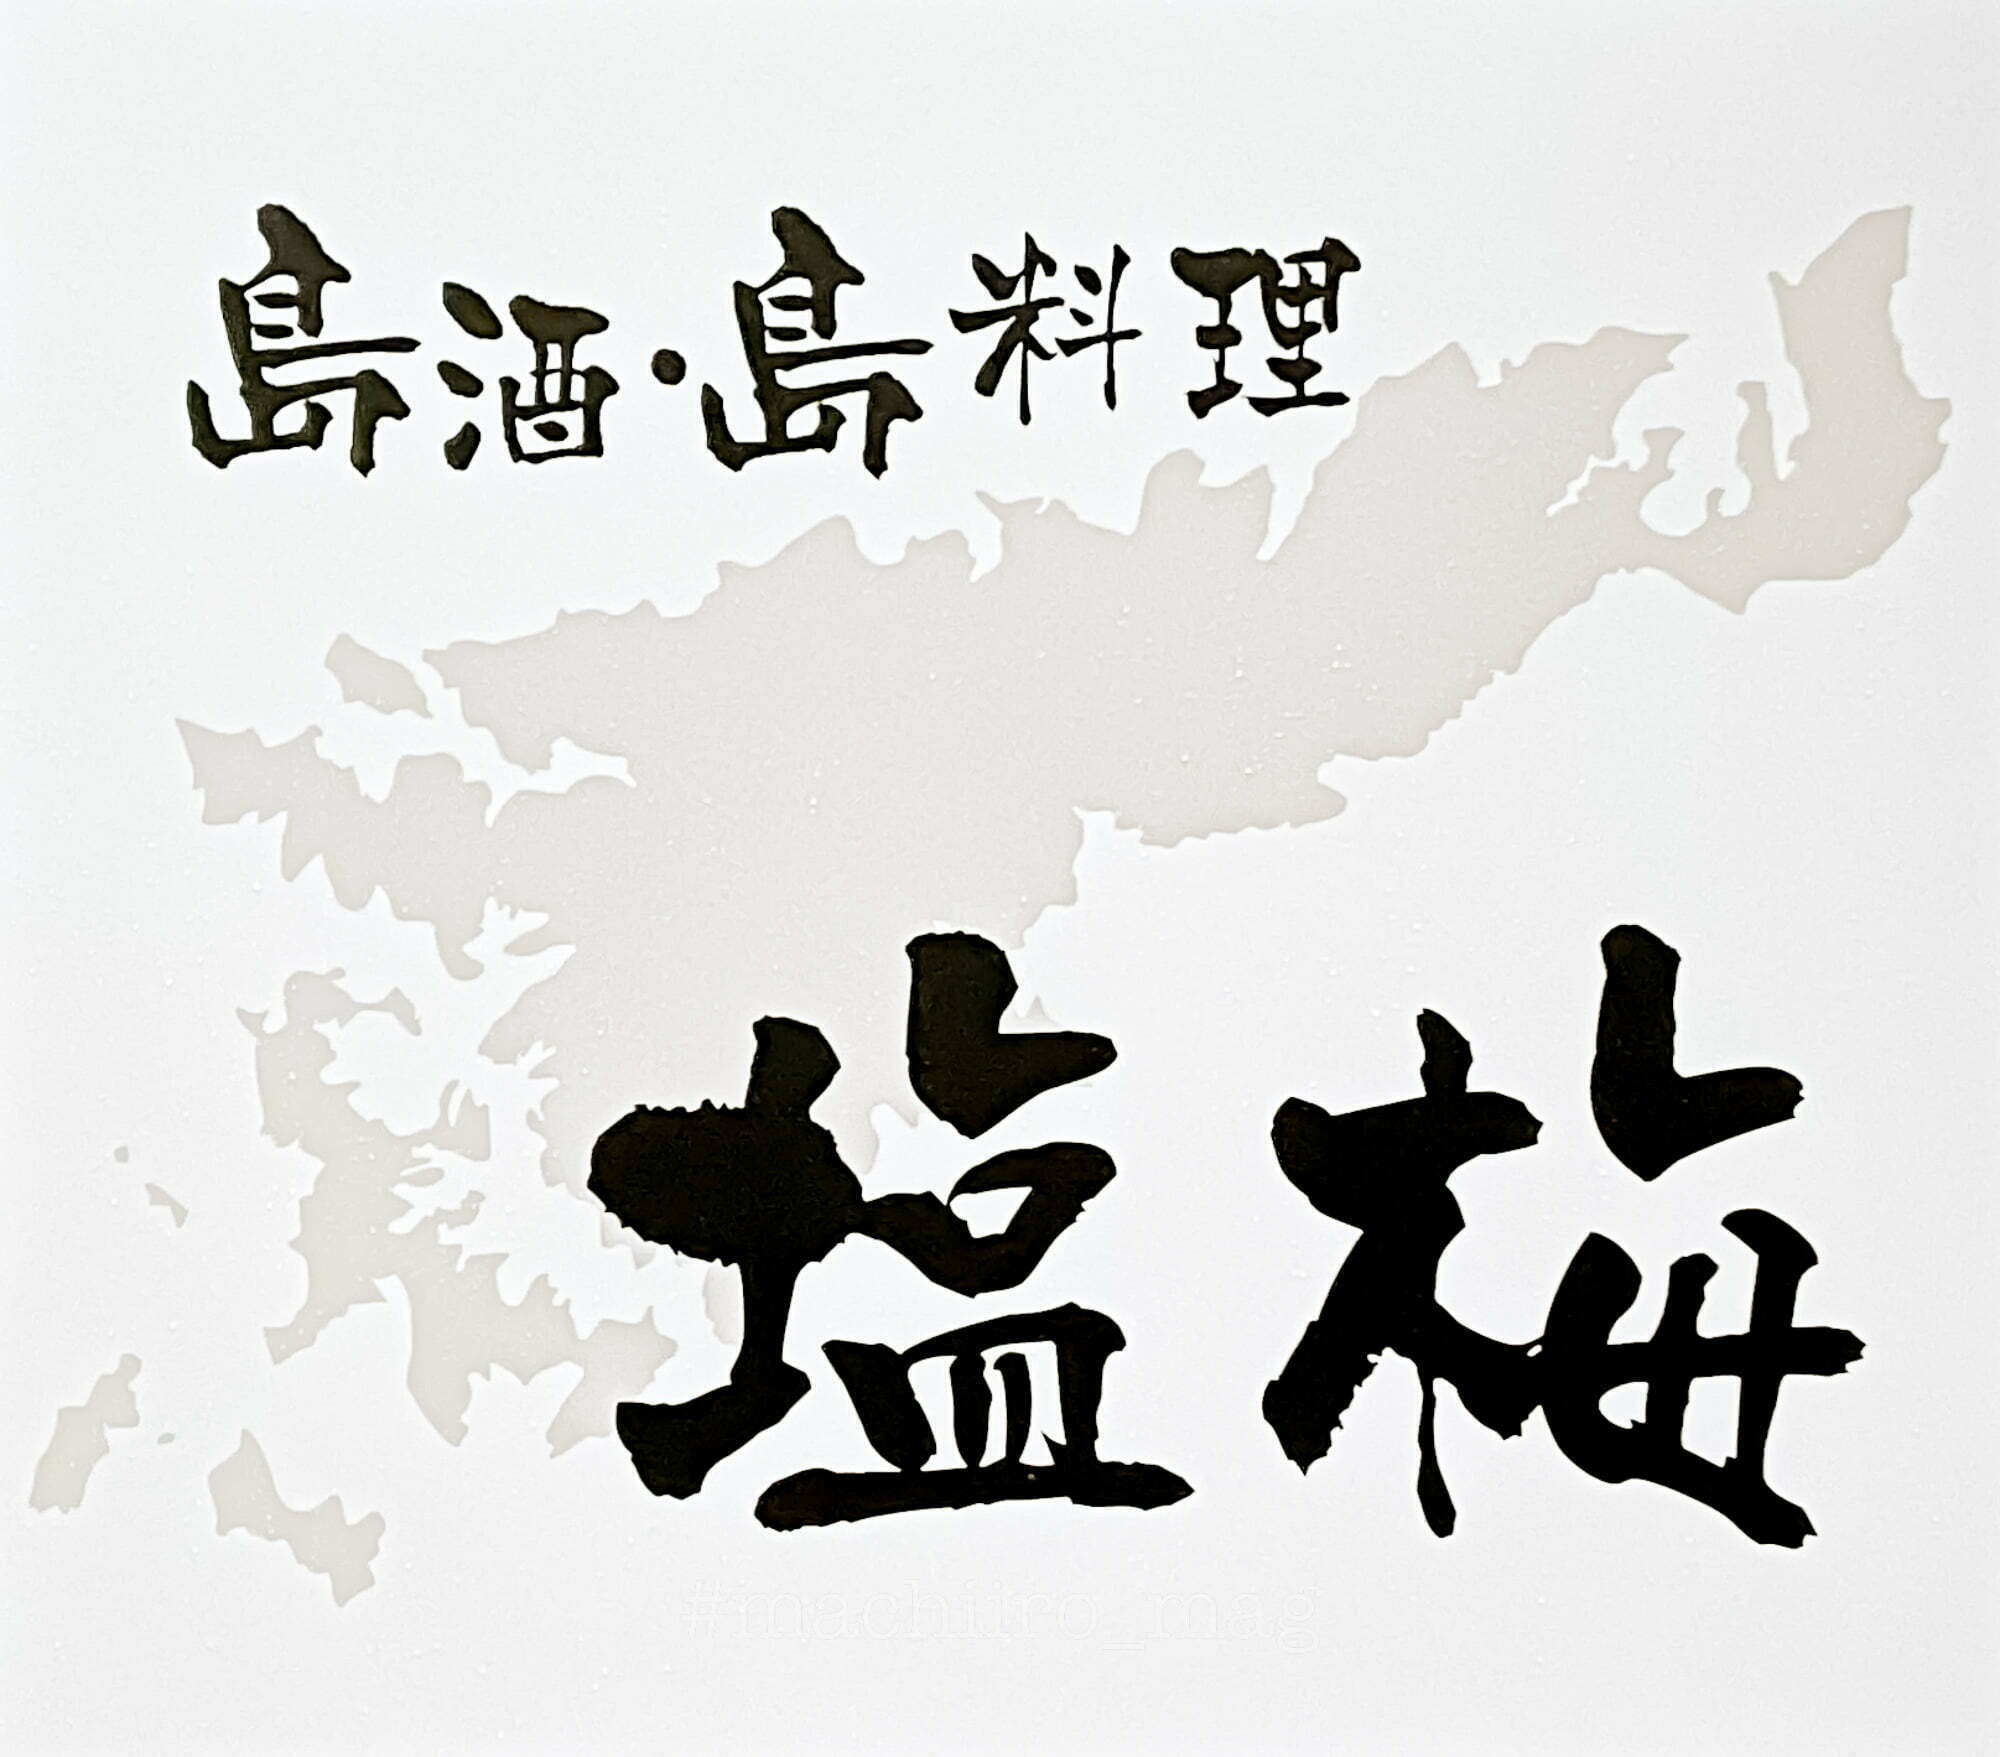 島酒・島料理
塩梅
#machiiro_mag